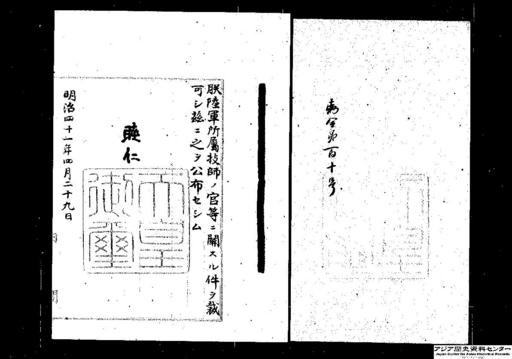 勅令第百十号
朕陸軍所屬技師ノ官等ニ關スル件ヲ裁
可シ茲ニ之ヲ公布セシム
睦仁
天皇御璽
明治四十一年四月二十九日
アジア歴史資料センター
Japan Center for Asian Historical Records